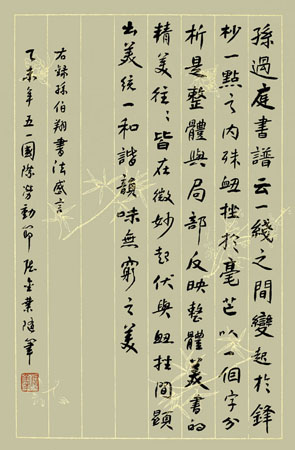 孫過庭書譜云一綫之間變起於鋒
杪一點之內殊衄挫於毫芒以一個字分
析是整體與局部反映整體美書的
精美往々皆在微妙起伏與衄挫間顕
出美統一和諧韻味無窮之美
右録孫伯翔書法感言
乙未年五一國際勞動節張業隨筆